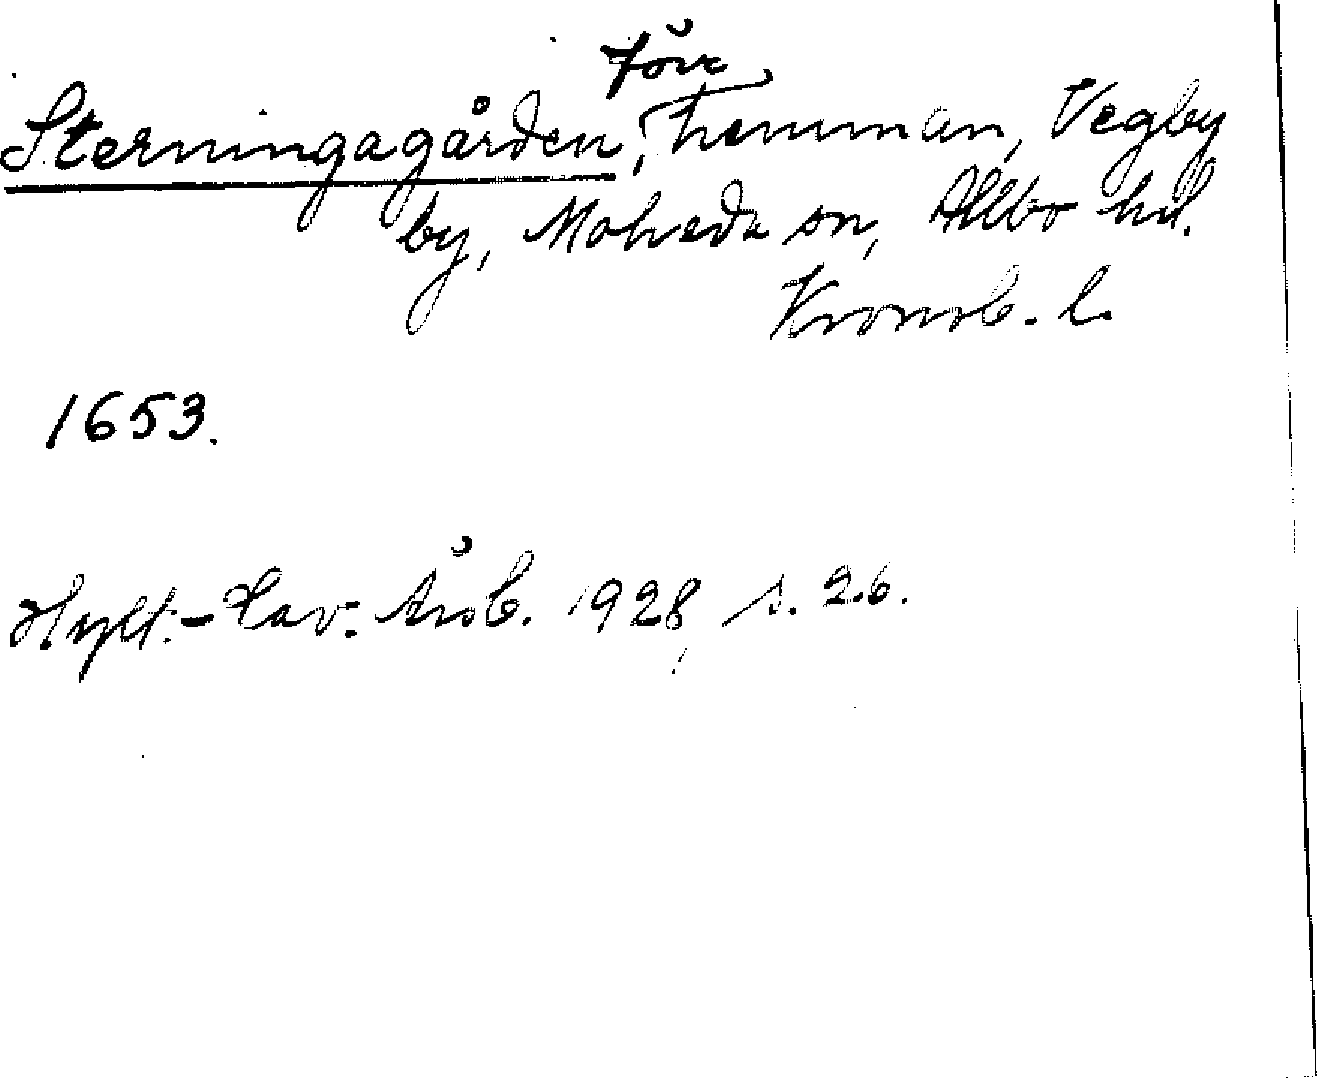 Sterningagården, förr hemman, Vegby
by, Moheda sn, Allbo hd.
Kronob. l.
1653.
Hylt.-Cav. Årsb. 1928, s. 26.